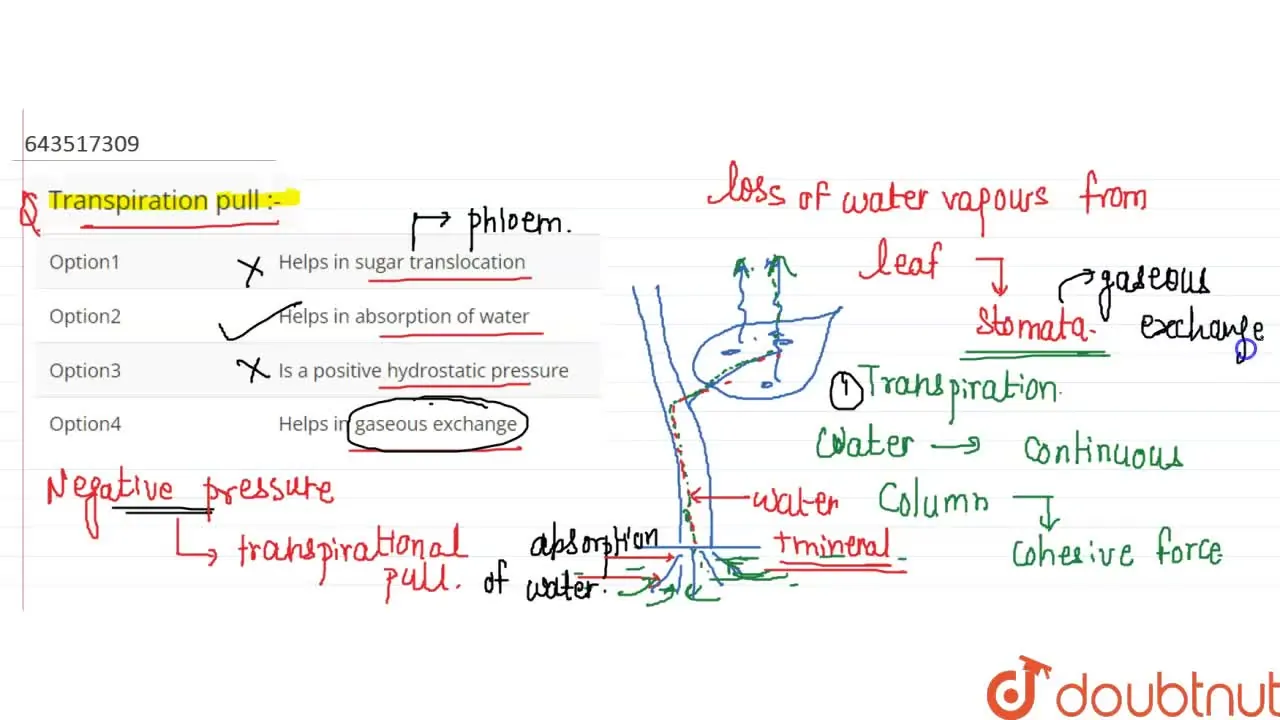 643517309
Q Transpiration pull :-
phloem.
Option1 Helps in sugar translocation
Option2 Helps in absorption of water
Option3 Is a positive hydrostatic pressure
Option4 Helps in gaseous exchange
Negative pressure
transpirational
pull.
absorption
of water.
loss of water vapours from
leaf
gaseous
Stomata. exchange
Transpiration.
Water → continuous
Column
cohesive force
water
+mineral
doubtnut